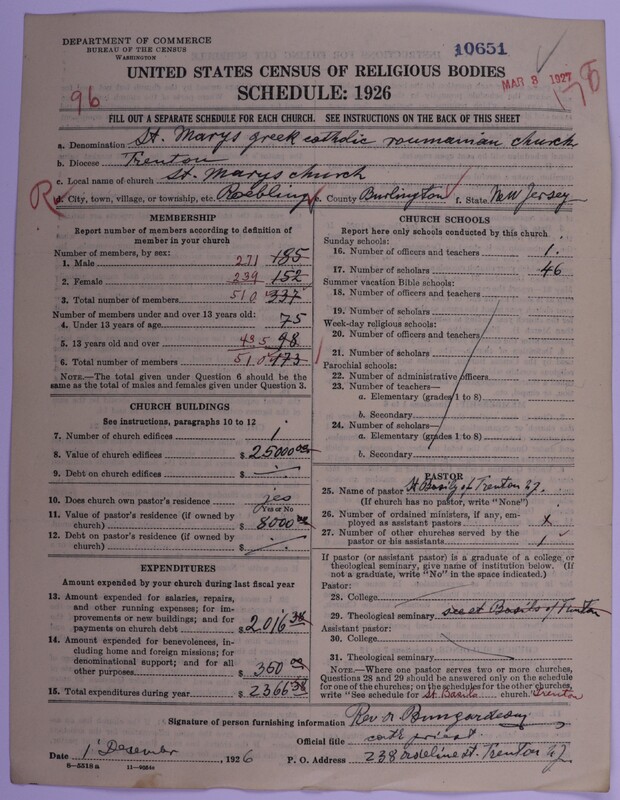 DEPARTMENT OF COMMERCE
BUREAU OF THE CENSUS
WASHINGTON
10651
MAR 3 1927
UNITED STATES CENSUS OF RELIGIOUS BODIES
SCHEDULE: 1926
96
FILL OUT A SEPARATE SCHEDULE FOR EACH CHURCH. SEE INSTRUCTIONS ON THE BACK OF THIS SHEET
a. Denomination St. Marys greek catholic roumanian church
b. Diocese Trenton
c. Local name of church St. Marys church
R
d. City, town, village, or township, etc. Roebling e. County Burlington f. State New Jersey
MEMBERSHIP
Report number of members according to definition of member in your church
Number of members, by sex:
1. Male 271 185
2. Female 239 152
3. Total number of members 510 337
Number of members under and over 13 years old:
4. Under 13 years of age 75
5. 13 years old and over 435 98
6. Total number of members 510 173
NOTE.—The total given under Question 6 should be the
same as the total of males and females given under Question 3.
CHURCH BUILDINGS
See instructions, paragraphs 10 to 12
7. Number of church edifices 1
8. Value of church edifices $ 25000 00
9. Debt on church edifices $
10. Does church own pastor's residence yes
Yes or No
11. Value of pastor's residence (if owned by
church) $ 8000
12. Debt on pastor's residence (if owned by
church) $
EXPENDITURES
Amount expended by your church during last fiscal year
13. Amount expended for salaries, repairs,
and other running expenses; for im-
provements or new buildings; and for
payments on church debt $ 2016 38
14. Amount expended for benevolences, in-
cluding home and foreign missions; for
denominational support; and for all
other purposes $ 350 00
15. Total expenditures during year $ 2366 38
CHURCH SCHOOLS
Report here only schools conducted by this church
Sunday schools:
16. Number of officers and teachers 1.
17. Number of scholars 46
Summer vacation Bible schools:
18. Number of officers and teachers
19. Number of scholars
Week-day religious schools:
20. Number of officers and teachers
21. Number of scholars
Parochial schools:
22. Number of administrative officers
23. Number of teachers—
a. Elementary (grades 1 to 8)
b. Secondary
24. Number of scholars—
a. Elementary (grades 1 to 8)
b. Secondary
PASTOR
25. Name of pastor St Basily of Trenton NJ.
(If church has no pastor, write "None")
26. Number of ordained ministers, if any, em-
ployed as assistant pastors x
27. Number of other churches served by the
pastor or his assistants 1
If pastor (or assistant pastor) is a graduate of a college or
theological seminary, give name of institution below. (If
not a graduate, write "No" in the space indicated.)
Pastor:
28. College
29. Theological seminary see st Basils of Trenton
Assistant pastor:
30. College
31. Theological seminary
NOTE.—Where one pastor serves two or more churches,
Questions 28 and 29 should be answered only on the schedule
for one of the churches; on the schedules for the other churches,
write "See schedule for St. Basils church." Trenton
Signature of person furnishing information Rev
Official title cath priest
Date 1 Desember, 1926 P. O. Address 238 Trenton NJ.
8—5518a 11—9084a